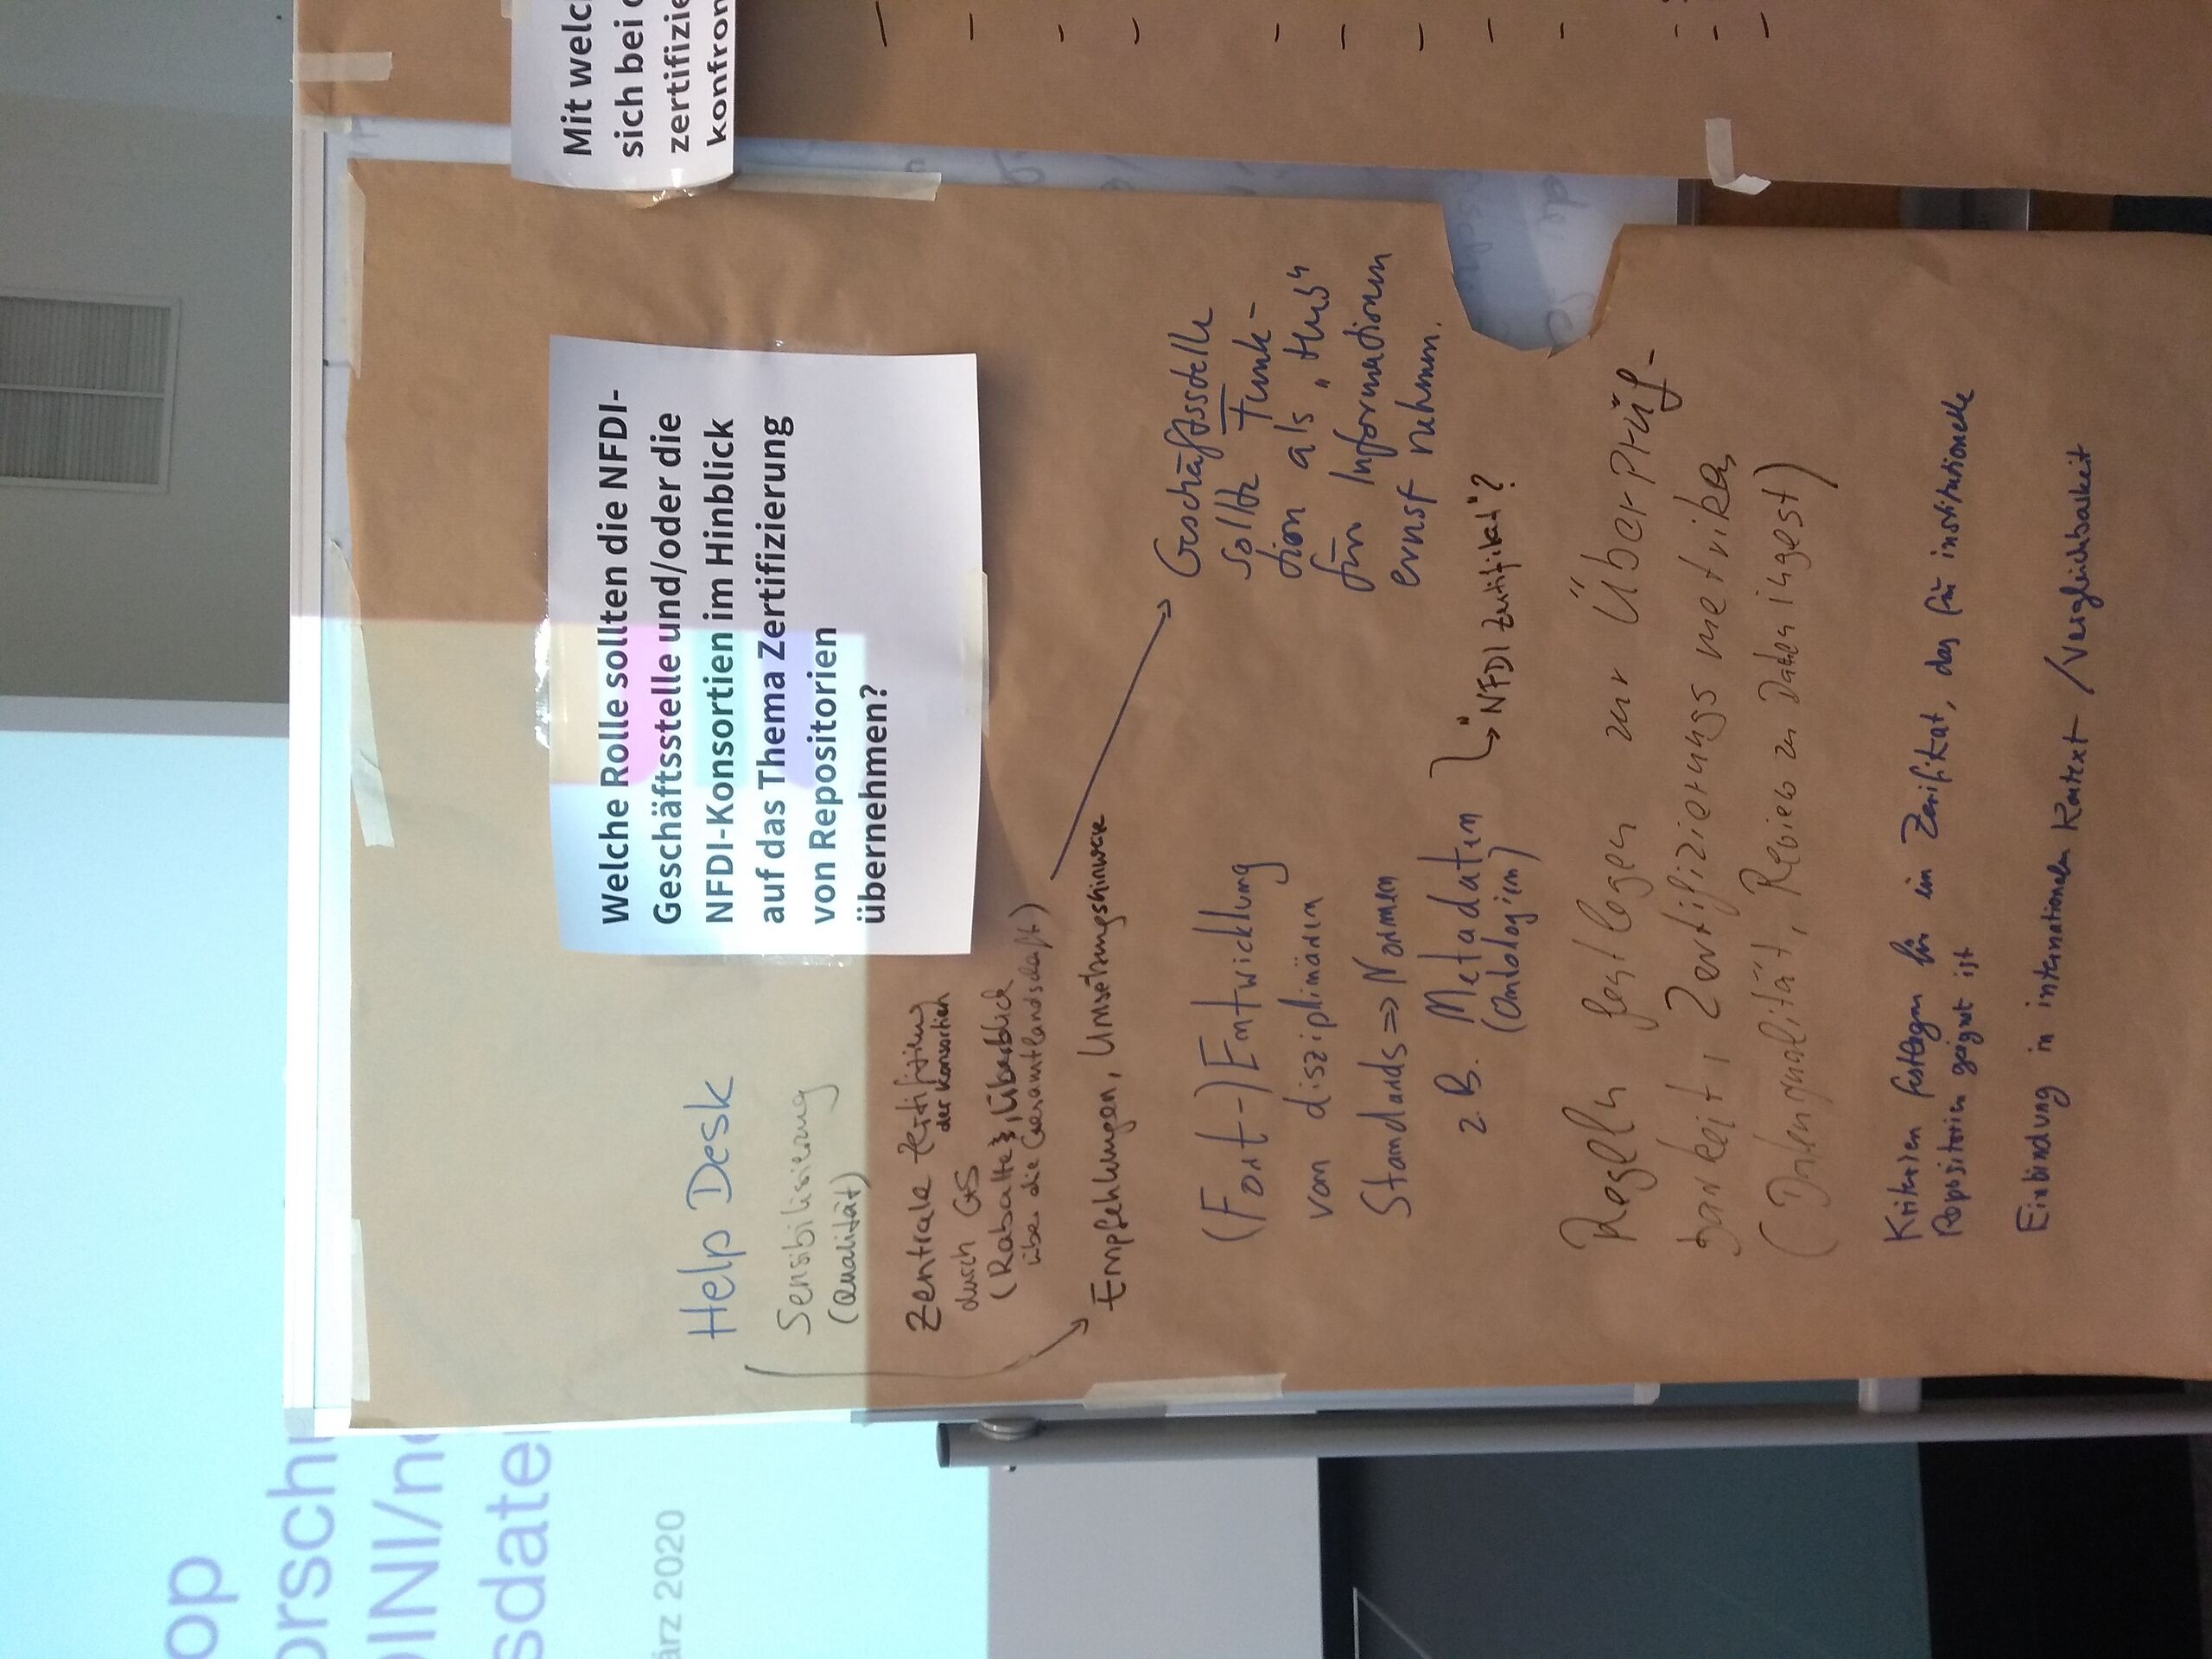 op
orsch
DINI/ne
sdate
ärz 2020
Mit welc
sich bei d
zertifizie
konfron
Welche Rolle sollten die NFDI-
Geschäftsstelle und/oder die
NFDI-Konsortien im Hinblick
auf das Thema Zertifizierung
von Repositorien
übernehmen?
Help Desk
Sensibilisierung
(Qualität)
Zentrale
der Konsortien
durch GS
(Rabatte, Überblick
über die Gesamtlandschaft)
Empfehlungen, Umsetzungshinweise
Geschäftsstelle
sollte Funk-
tion als "Hub"
für Informationen
ernst nehmen.
(Fort-)Entwicklung
von disziplinären
Standards => Normen
z.B. Metadaten
(Ontologien)
"NFDI Zertifikat"?
Regeln festlegen zur Überprüf-
barkeit, Zertifizierungsmetriken
(Datenqualität, Review zu Dateningest)
Kriterien festlegen für ein Zerifikat, das für institutionelle
Repositorien geeignet ist
Einbindung in internationalen Kontext / Vergleichbarkeit